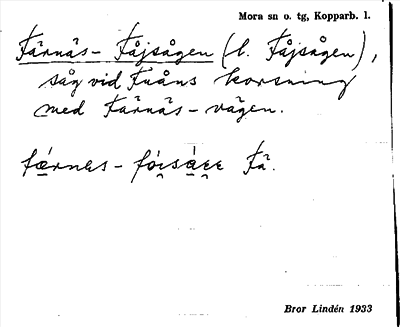 Mora sn o. tg, Kopparb. l.
Färnäs-Fåjsågen (l. Fåjsågen),
såg vid Fuåns korsning
med Färnäs-vägen.
Fä.
Bror Lindén 1933